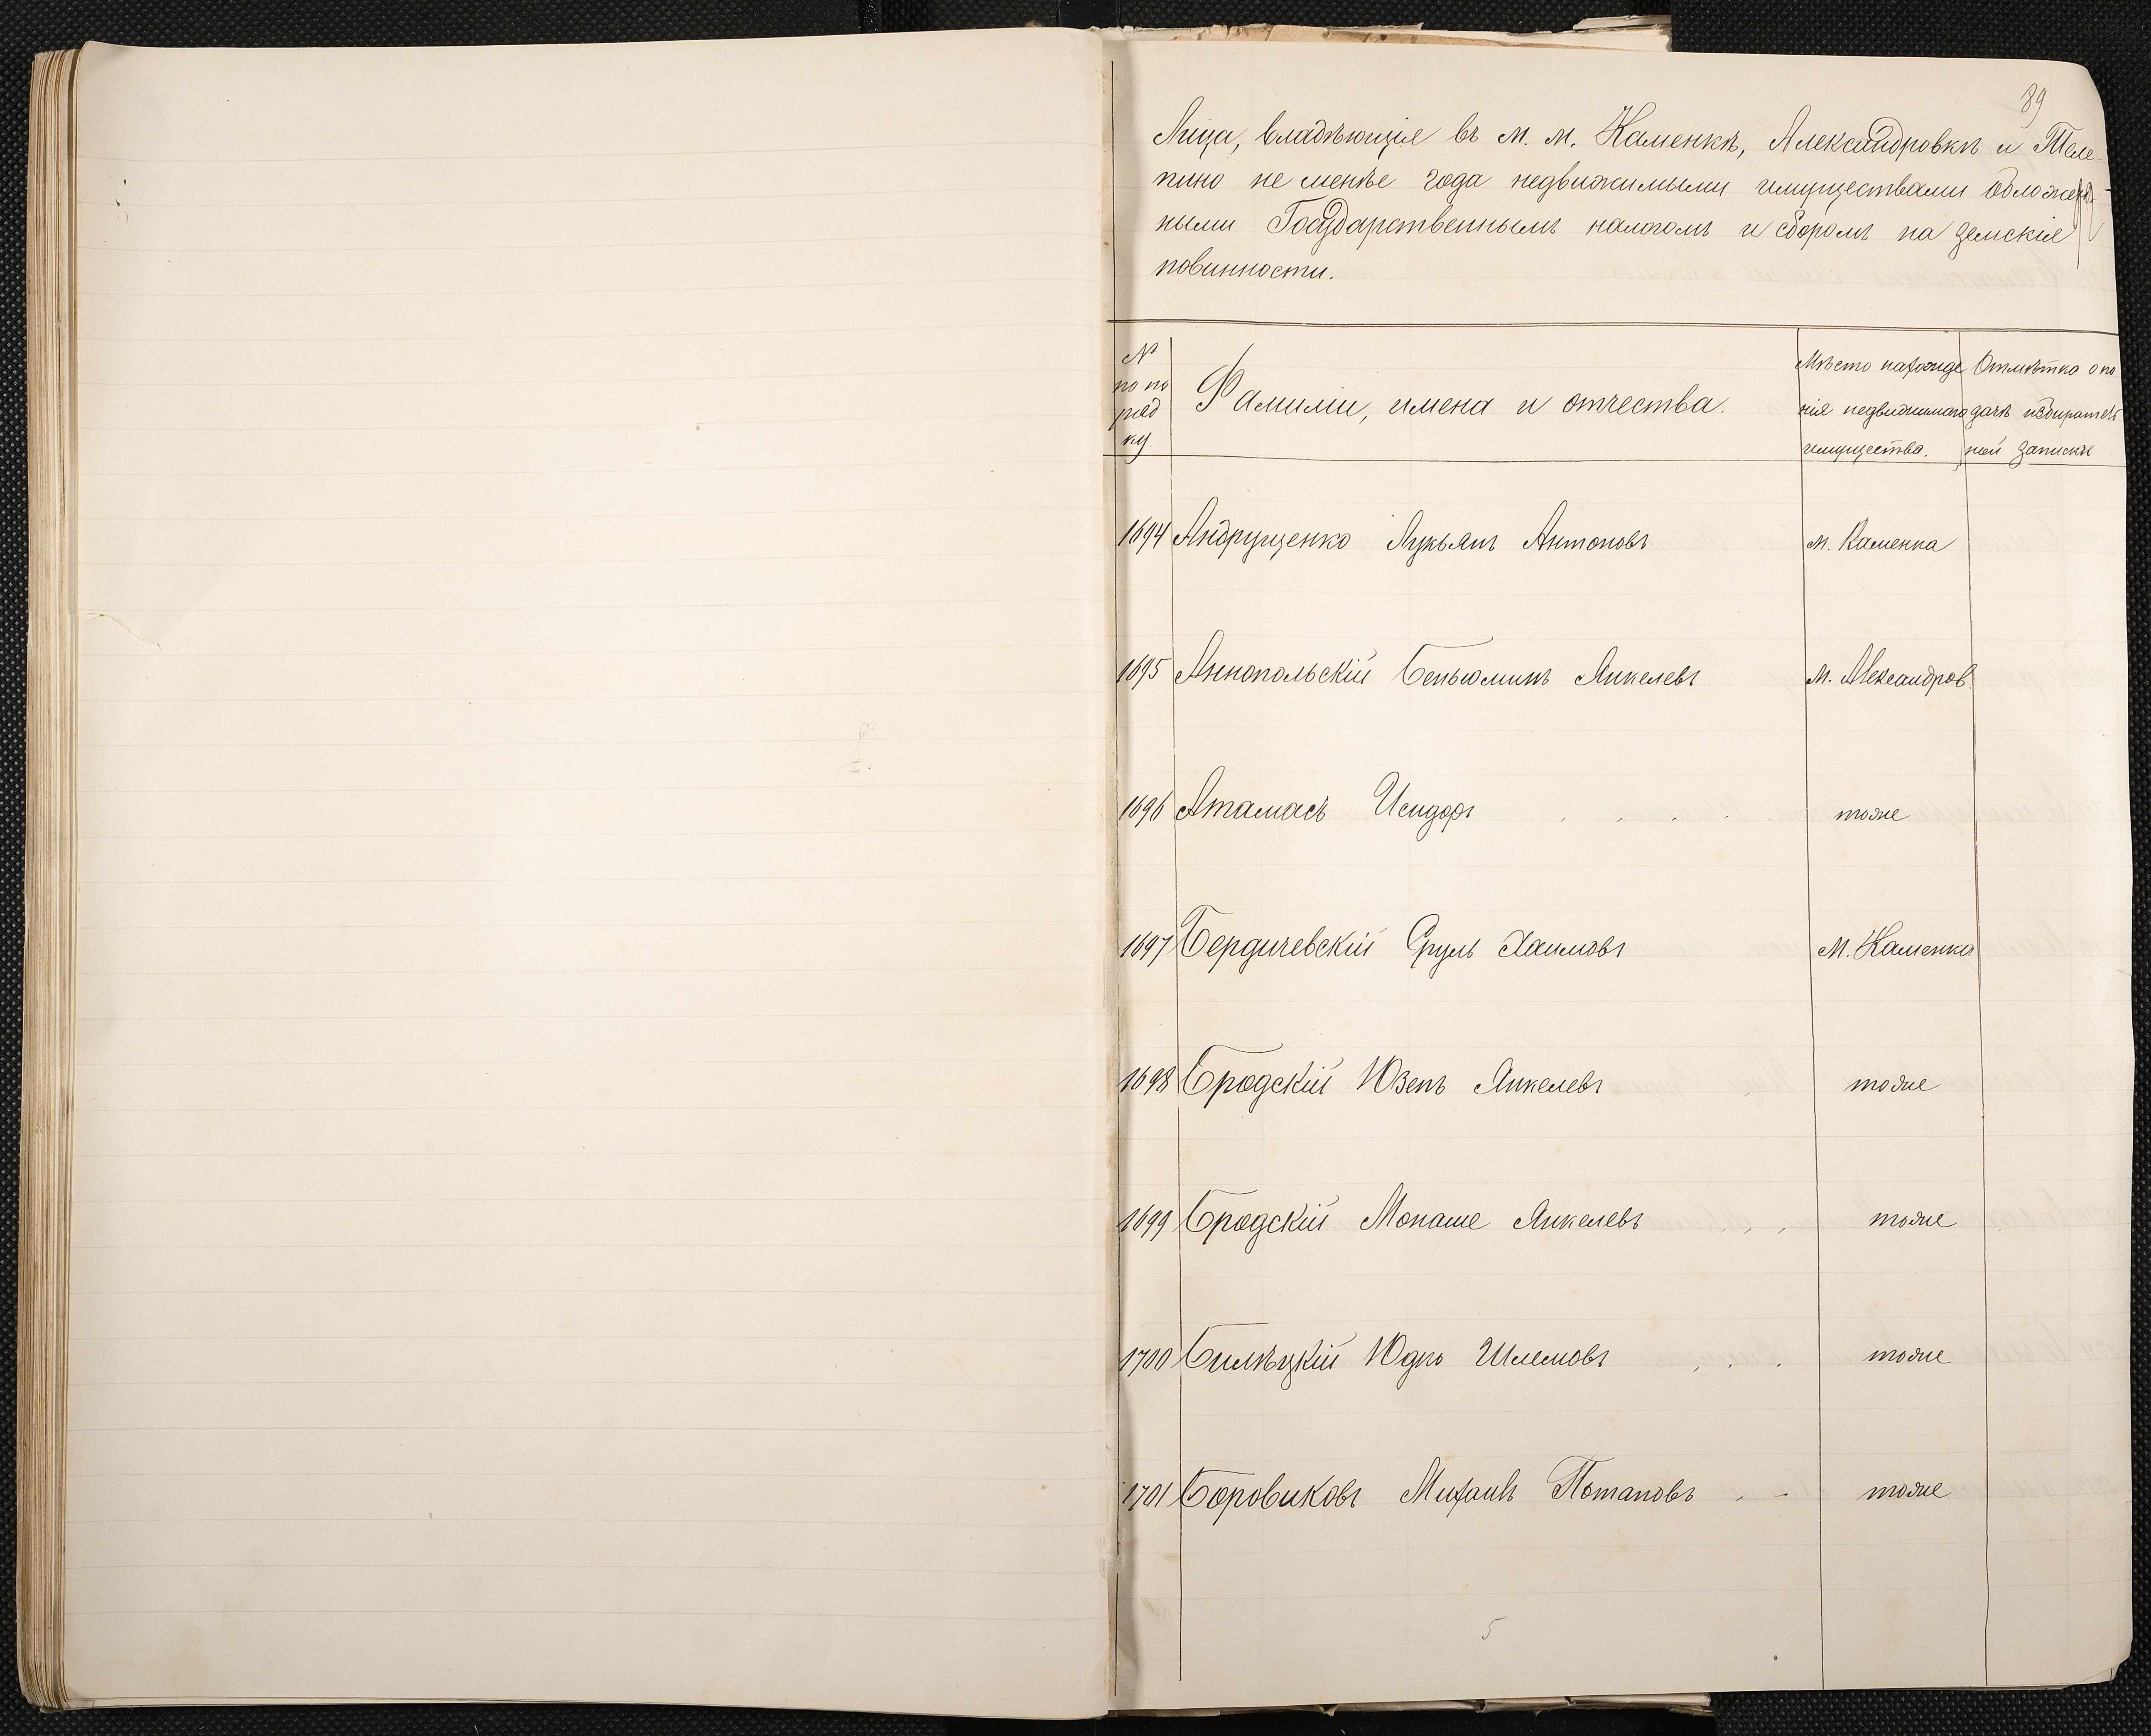 89
Лица, владѣющія въ м. м. Каменкѣ, Александровкѣ и Теле-
пино не менѣе года недвижимыми имуществами обложен-
ными Государственнымъ налогомъ и сборомъ на земскія
повинности.
№ по по ряд ку.
Фамиліи, имена и отчества.
Мѣсто нахожде нія недвижимаго имущества.
Отмѣтка о по дачѣ избиратель ной записки
1694 Андрущенко Лукьянъ Антоновъ м. Каменка
1695 Аннопольскій Беньюминъ Янкелевъ м. Александров.
1696 Атамасъ Исидоръ тоже
1697 Бердичевскій Сруль Хаимовъ м. Каменка
1698 Бродскій Юзепъ Янкелевъ тоже
1699 Бродскій Монаше Янкелевъ тоже
1700 Билѣцкій Юдко Шлемовъ тоже
1701 Боровиковъ Михаилъ Потаповъ тоже
5